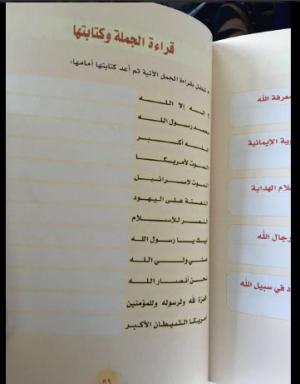 قراءة الجملة وكتابتها
بقراءة الجمل الآتية ثم أعد كتابتها أمامها:
إله إلا الله
محمد رسول الله
الله أكبر
الموت لأمريكا
الموت لإسرائيل
اللعنة على اليهود
النصر للإسلام
لبيك يا رسول الله
علي ولي الله
نحن أنصار الله
العزة لله ولرسوله وللمؤمنين
أمريكا الشيطان الأكبر
معرفة الله
الإيمانية
الهداية
رجال الله
في سبيل الله